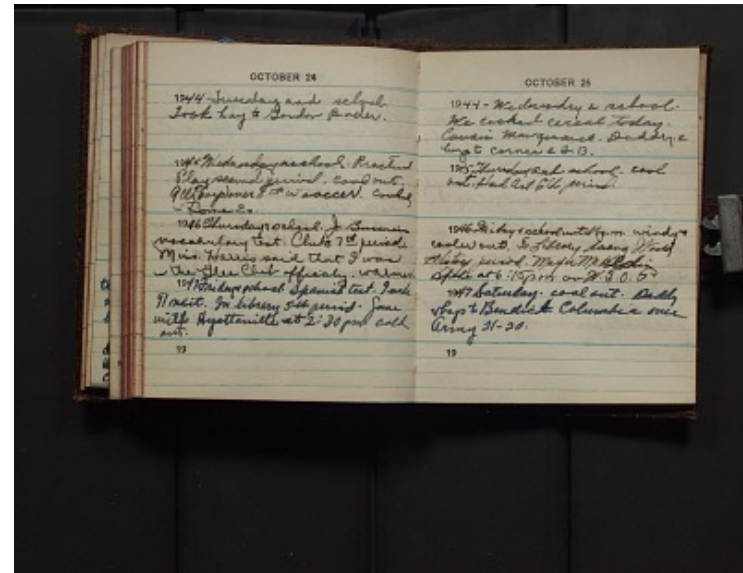 OCTOBER 24
1944-Tuesday and school.
Took hay to Gordon
1945 Wednesday & school. Practiced
Play second period. Cool out.
9th won over 8th in soccer. Cooked
in Home Ec.
1946 Thursday & school. J
vocabulary test. Club 7th period
Miss Harris said that I was
in the Glee Club officially. warmer
1947 Friday & school. Spanish test. I
it. In library 5th period. Game
with Hyattsville at 2:30 pm cold
out.
19
OCTOBER 25
1944-Wednesday & school.
We cooked cereal today.
Cousin Marguerite. Daddy &
corner &
1945 Thursday and school. cool
out. Had Art 6th period.
1946 Friday & school until 1 p.m. windy &
cooler out. In Library during World
History period. Major
spoke at 6:15 pm on
1947 Saturday. cool out. Daddy
to Bendix Columbia over
Army 21-20.
19